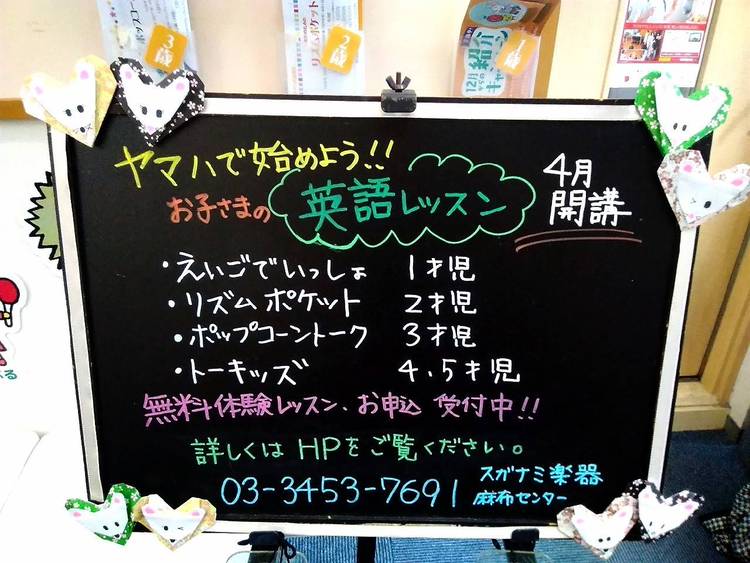 3歳
2歳
1歳
リズムポケット
12月
紹介
ヤマハで始めよう!!
お子さまの 英語レッスン
4月
開講
・えいごでいっしょ 1才児
・リズムポケット 2才児
・ポップコーントーク 3才児
・トーキッズ 4.5才児
無料体験レッスン、お申込 受付中!!
詳しくは HPをご覧ください。
03-3453-7691
スガナミ楽器
麻布センター